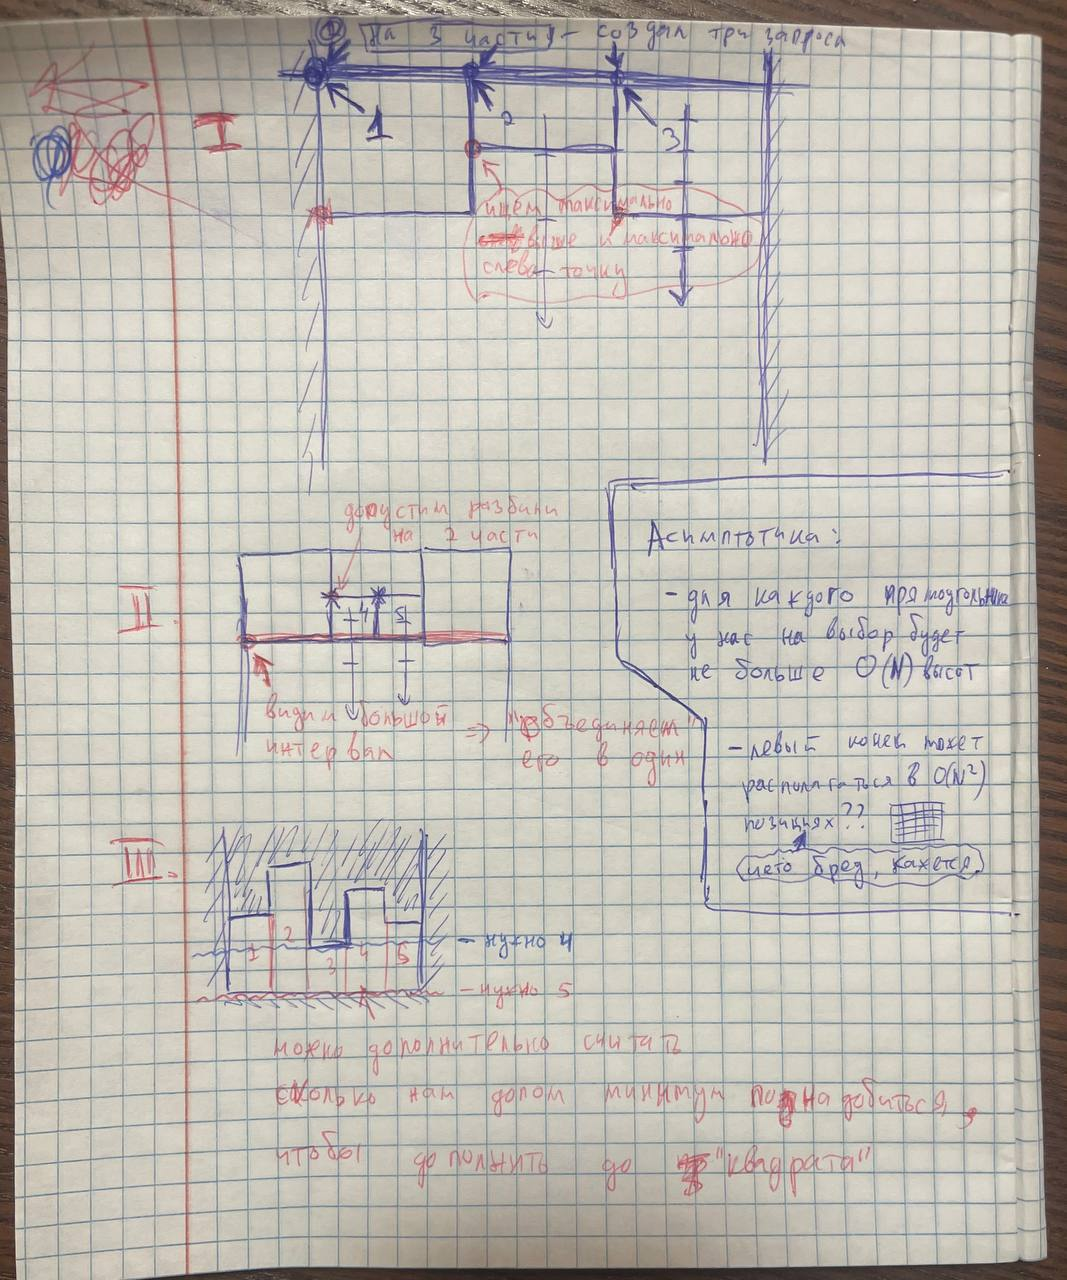 на 3 части - создал три запроса
I
1
2
3
ищем максимально
выше и максимально
слева точку
допустим разбили
на 2 части
II
4
5
видим большой
интервал
=> "объединяем"
его в один
Асимптотика:
- для каждого прямоугольника
у нас на выбор будет
не больше O(N) высот
- левый конец может
располагаться в O(N²)
позициях??
чето бред, кажется
III.
1
2
3
4
5
- нужно 4
- нужно 5
можно дополнительно считать
сколько нам допом минимум понадобиться,
чтобы дополнить до "квадрата"